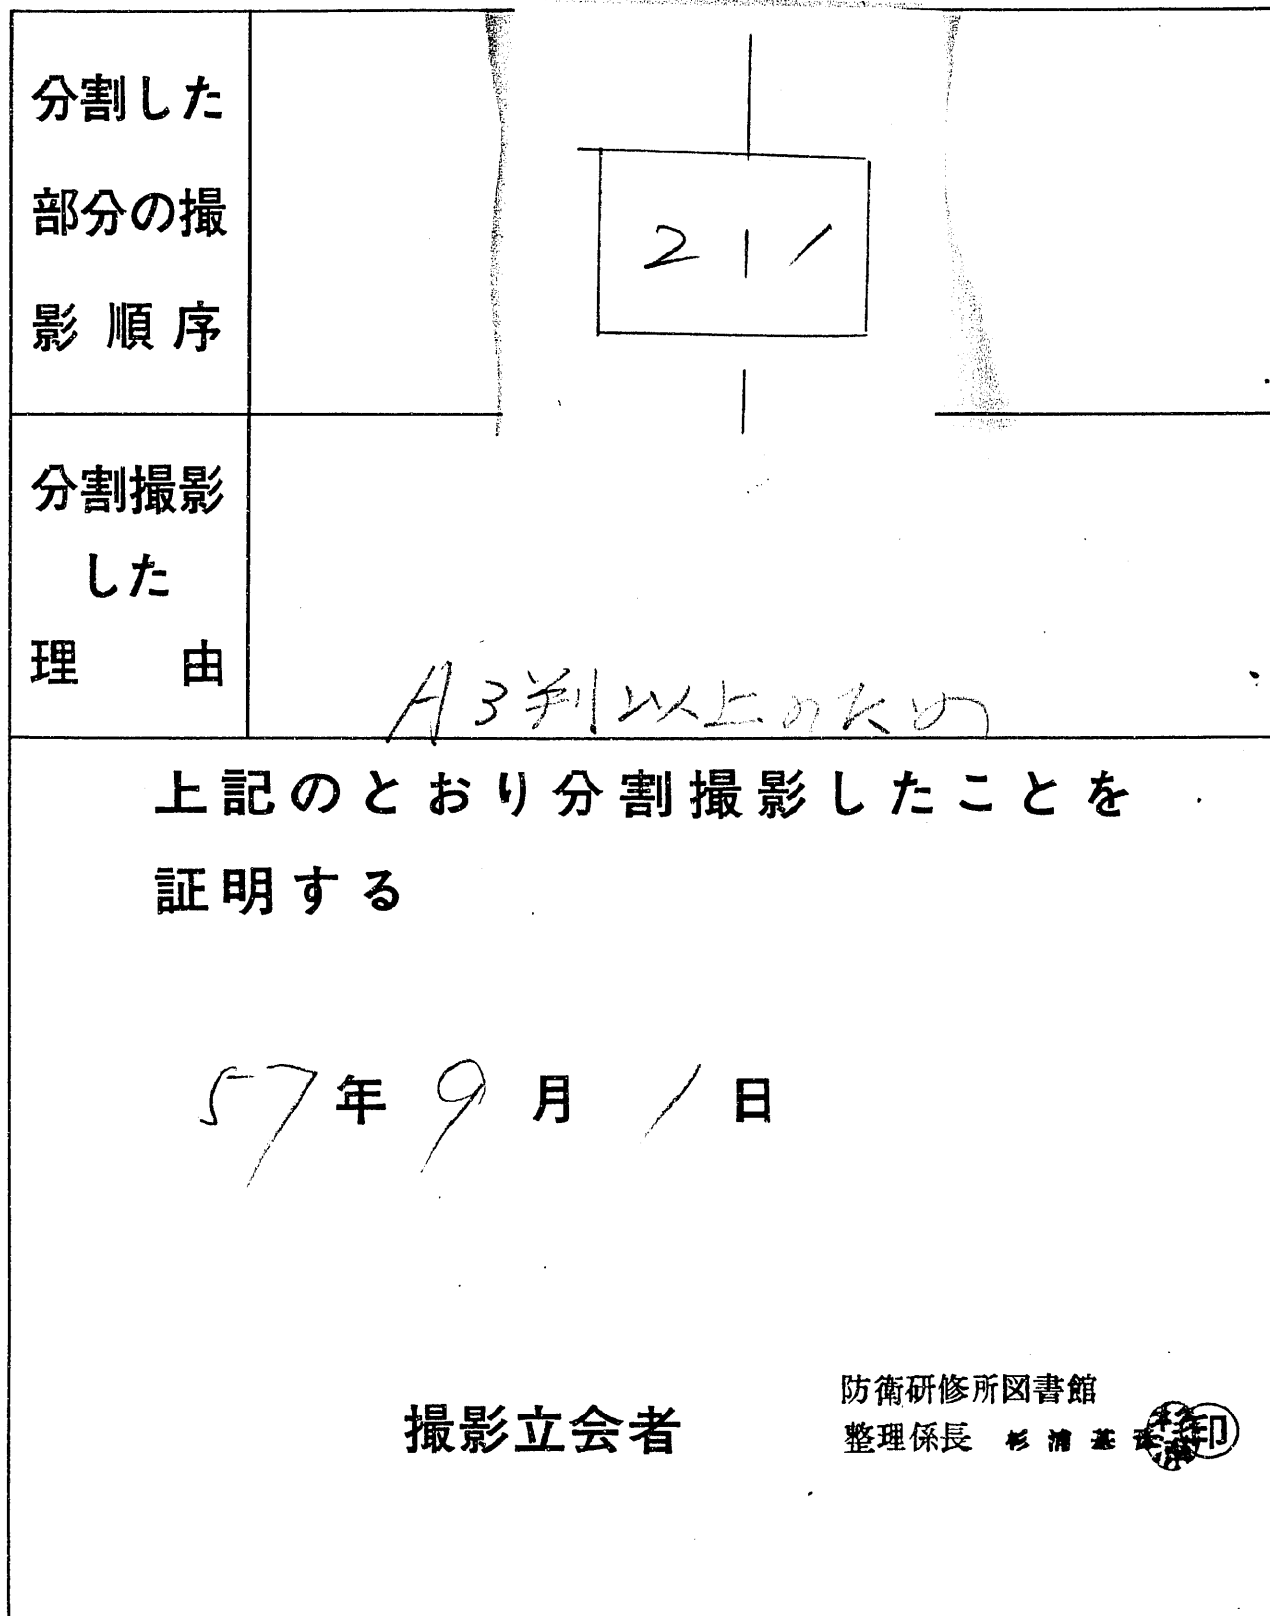 分割した
部分の撮
影順序
2 | 1
分割撮影
した
理由
A3判以上のため
上記のとおり分割撮影したことを
証明する
57年9月1日
撮影立会者
防衛研修所図書館
整理係長 杉浦
印